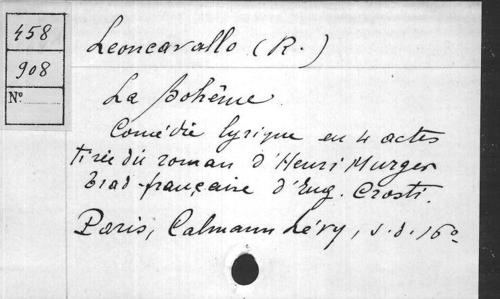 458
908
N°
Leoncavallo (R.)
La Bohême
Comédie lyrique en 4 actes
tirée du roman d'Henri Murger
trad française d'Eug. Crosti.
Paris, Calmann Lévy, s.d. 16°